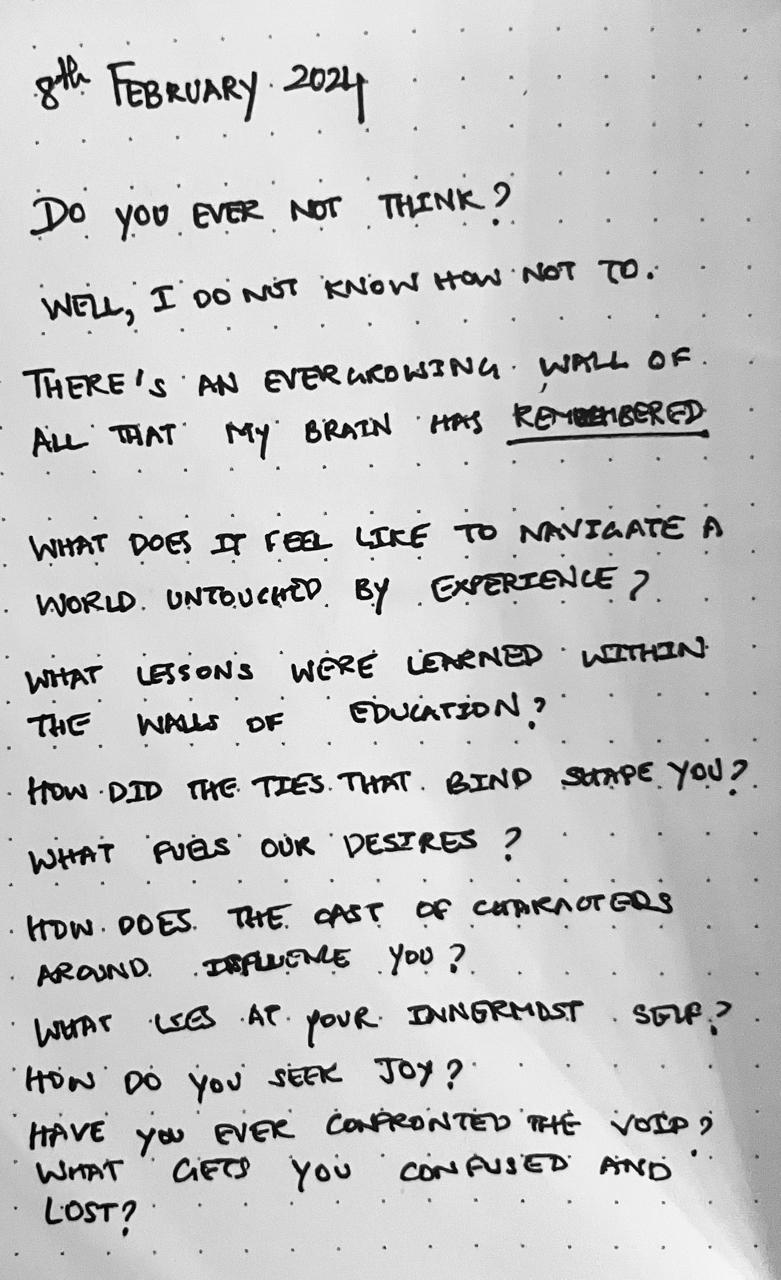 8th FEBRUARY 2024
DO YOU EVER NOT THINK?
WELL, I DO NOT KNOW HOW NOT TO.
THERE'S AN EVERGROWING WALL OF
ALL THAT MY BRAIN HAS REMEMBERED
WHAT DOES IT FEEL LIKE TO NAVIGATE A
WORLD UNTOUCHED BY EXPERIENCE?
WHAT LESSONS WERE LEARNED WITHIN
THE WALLS OF EDUCATION?
HOW DID THE TIES THAT BIND SHAPE YOU?
WHAT FUELS OUR DESIRES?
HOW DOES THE CAST OF CHARACTERS
AROUND INFLUENCE YOU?
WHAT LIES AT YOUR INNERMOST SELF?
HOW DO YOU SEEK JOY?
HAVE YOU EVER CONFRONTED THE VOID?
WHAT GETS YOU CONFUSED AND
LOST?